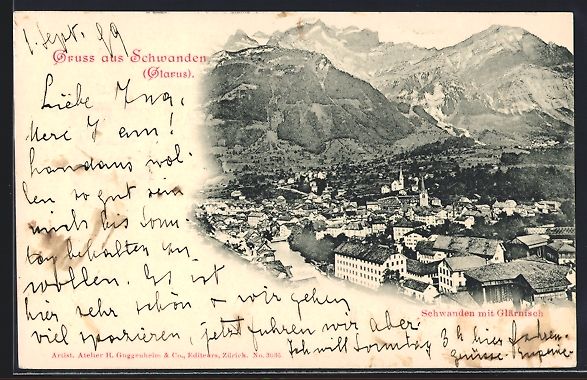 1. Sept. 99
Gruss aus Schwanden
(Glarus).
Liebe
here I am!
wol-
len so gut sein
mich bis Sonn-
tag behalten zu
wollen. Es ist
hier sehr schön & wir gehen
viel spazieren, jetzt fahren wir aber
Ich will Sonntag 3 h hier
Schwanden mit Glärnisch
Artist. Atelier H. Guggenheim & Co., Editeurs, Zürich. No. 3636